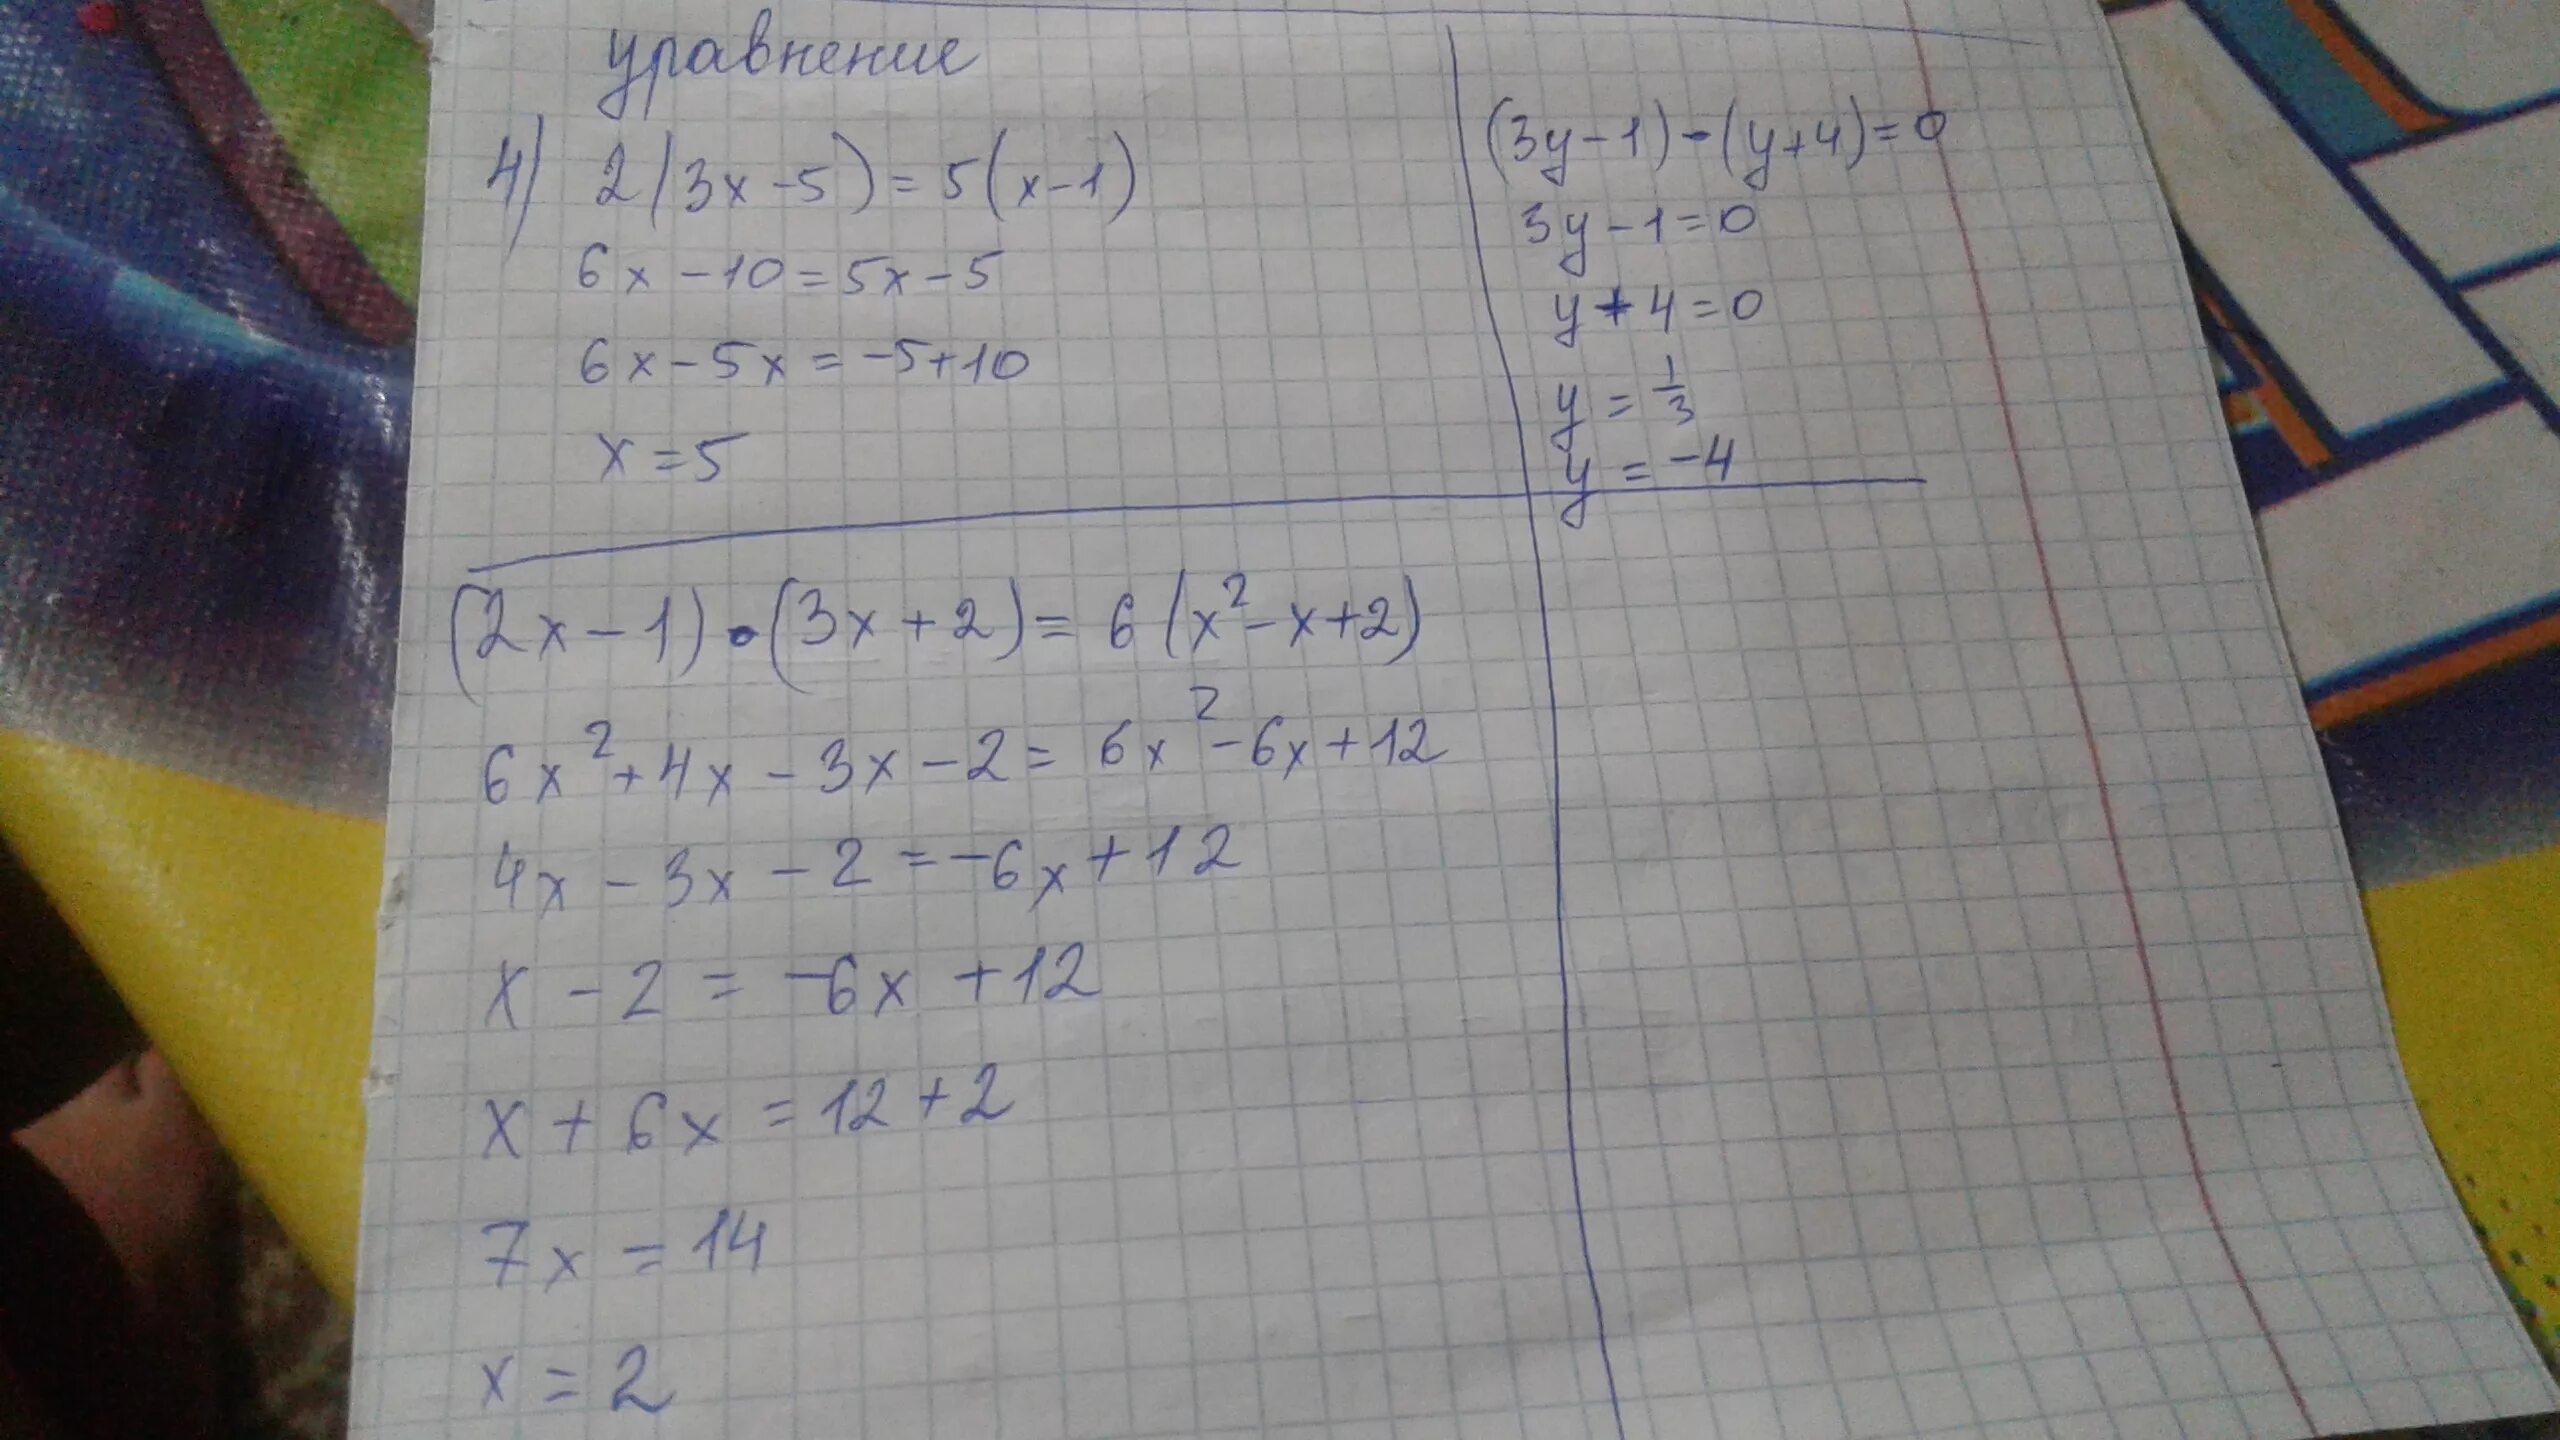 уравнение
4) 2(3x-5)=5(x-1)
6x-10=5x-5
6x-5x=-5+10
x=5
(3y-1)·(y+4)=0
3y-1=0
y+4=0
y=1/3
y=-4
(2x-1)·(3x+2)=6(x²-x+2)
6x²+4x-3x-2=6x²-6x+12
4x-3x-2=-6x+12
x-2=-6x+12
x+6x=12+2
7x=14
x=2